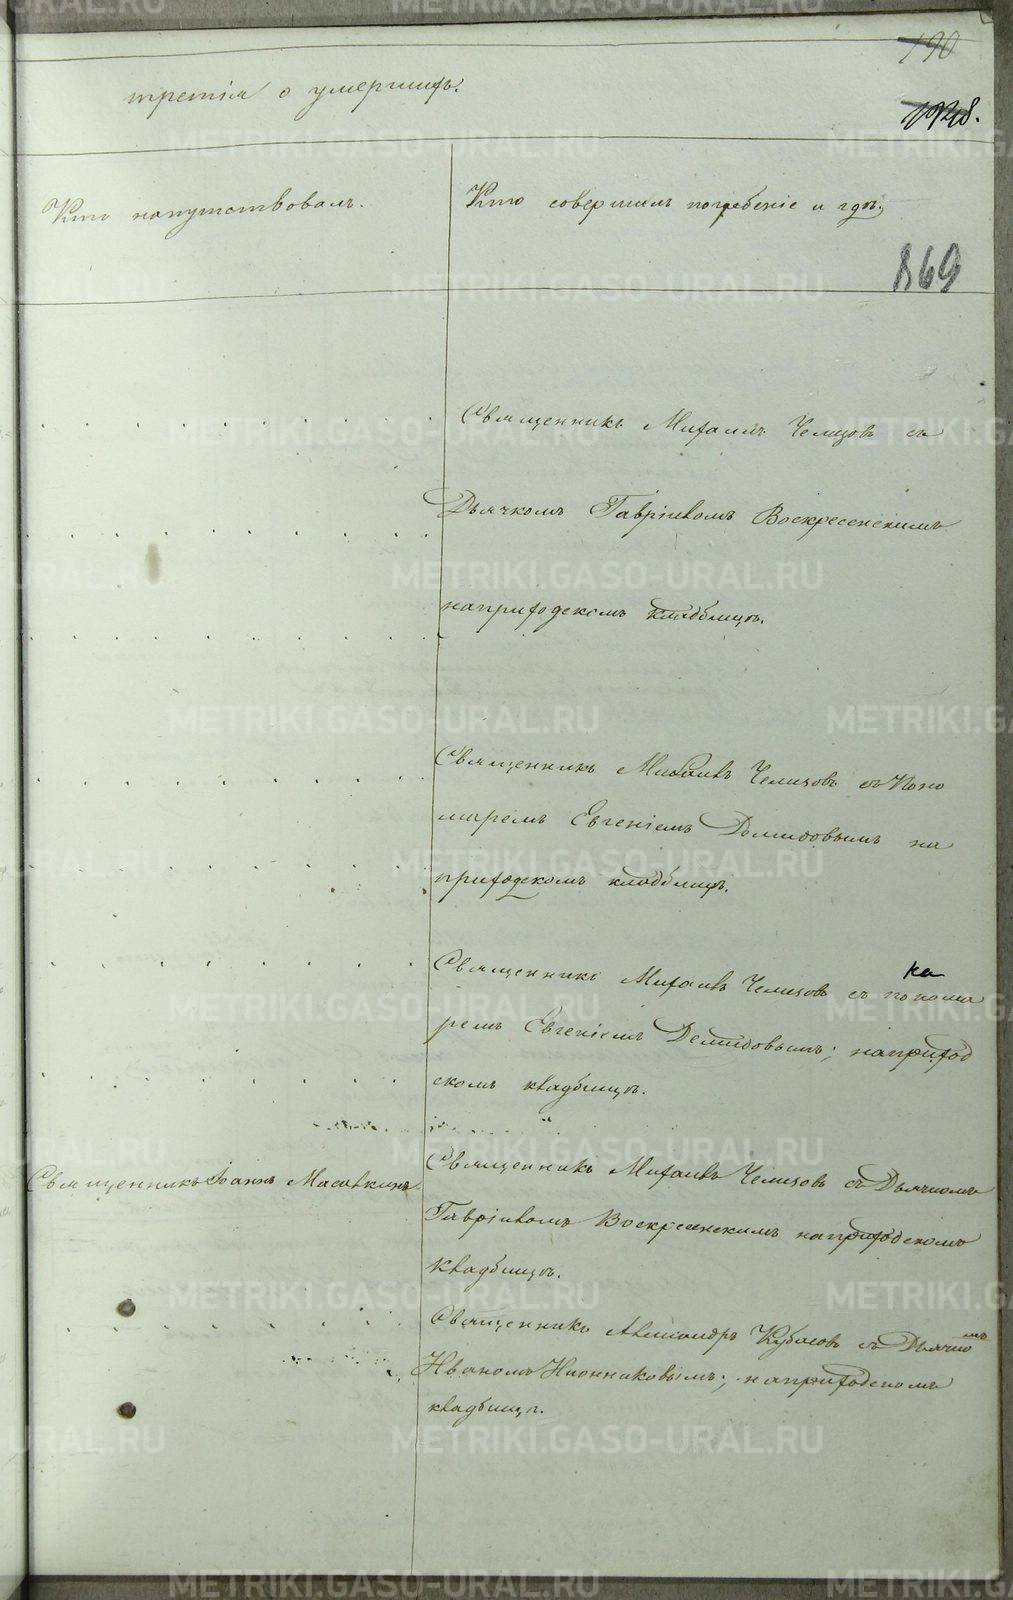 190
третія о умершихъ.
1128.
Кто напутствовалъ.
Кто совершалъ погребеніе и гдѣ.
869
Священникъ Михаилъ Чемизовъ съ
Дьячкомъ Гавріиломъ Воскресенскимъ
наприходскомъ кладбищѣ.
Священникъ Михаилъ Чемизовъ съ Поно
маремъ Евгеніемъ Демидовымъ на
приходскомъ кладбищѣ.
Священникъ Михаилъ Чемизовъ съ понома
ремъ Евгеніемъ Демидовымъ; наприход
скомъ кладбищѣ.
Священникъ Іоаннъ
Священникъ Михаилъ Чемизовъ съ Дьячкомъ
Гавріиломъ Воскресенскимъ наприходскомъ
кладбищѣ.
Священникъ Александръ съ Дьячкомъ
Иваномъ наприходскомъ
кладбищѣ.
METRIKI.GASO-URAL.RU